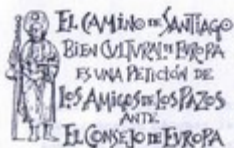 EL CAMINO DE SANTIAGO
BIEN CVLTVRAL DE EVROPA
ES VNA PETICIÓN DE
LOS AMIGOS DE LOS PAZOS
ANTE
EL CONSEJO DE EVROPA